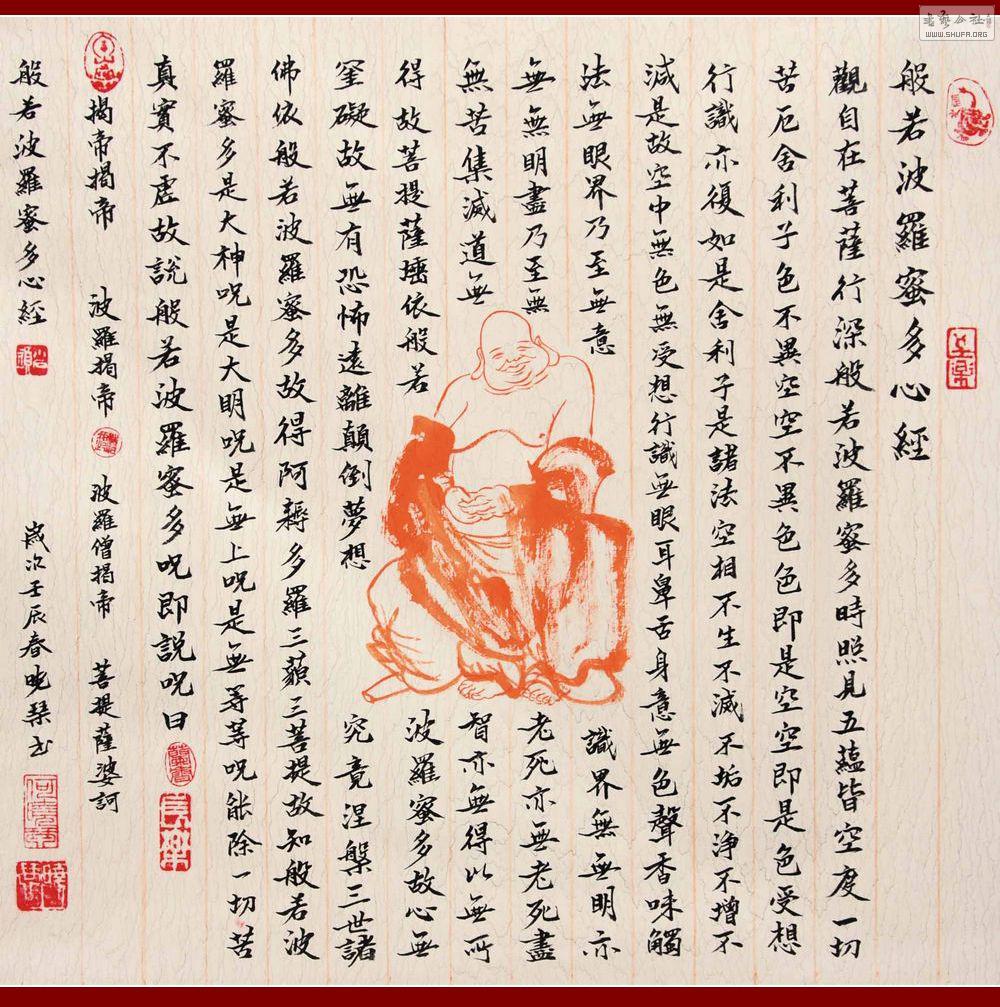 般若波羅蜜多心經
觀自在菩薩行深般若波羅蜜多時照見五蘊皆空度一切
苦厄舍利子色不異空空不異色色即是空空即是色受想
行識亦復如是舍利子是諸法空相不生不滅不垢不淨不增不
減是故空中無色無受想行識無眼耳鼻舌身意無色聲香味觸
法無眼界乃至無意 識界無無明亦
無無明盡乃至無 老死亦無老死盡
無苦集滅道無 智亦無得以無所
得故菩提薩埵依般若 波羅蜜多故心無
罣礙故無有恐怖遠離顛倒夢想 究竟涅槃三世諸
佛依般若波羅蜜多故得阿耨多羅三藐三菩提故知般若波
羅蜜多是大神呪是大明呪是無上呪是無等等呪能除一切苦
真實不虛故說般若波羅蜜多呪即說呪曰
揭帝揭帝 波羅揭帝 波羅僧揭帝 菩提薩婆訶
般若波羅蜜多心經
歲次壬辰春曉琴书
何曉琴
WWW.SHUFA.ORG